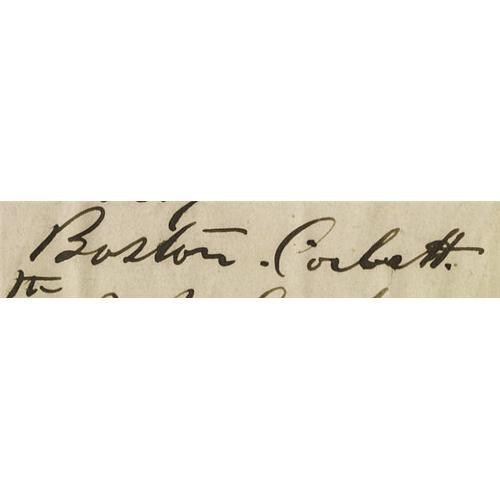 Boston. Corbett.
th